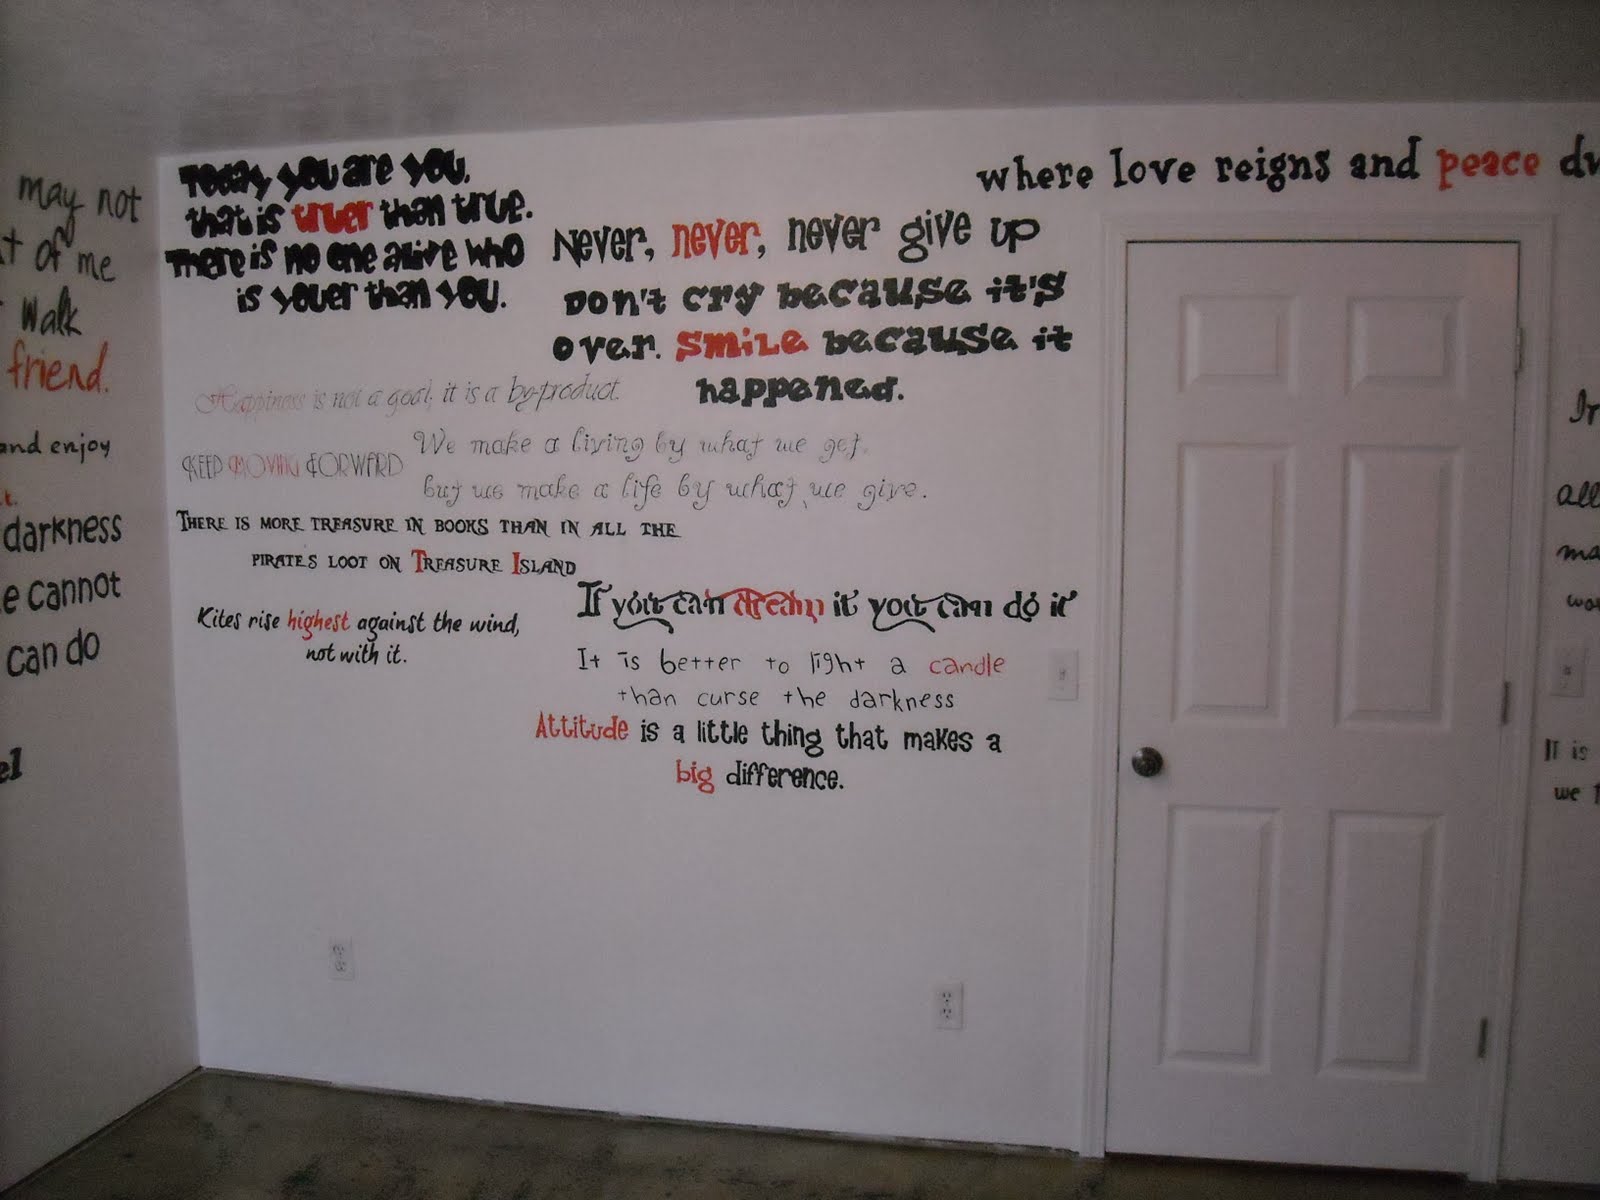 may not
t of me
walk
friend.
and enjoy
t.
darkness
e cannot
can do
el
Today you are you,
that is truer than true.
There is no one alive who
is youer than you.
Never, never, never give up
Don't cry because it's
over. Smile because it
happened.
Happiness is not a goal; it is a by-product.
KEEP MOVING FORWARD
We make a living by what we get,
but we make a life by what we give.
THERE IS MORE TREASURE IN BOOKS THAN IN ALL THE
PIRATE'S LOOT ON TREASURE ISLAND
Kites rise highest against the wind,
not with it.
If you can dream it you can do it
It is better to light a candle
than curse the darkness
Attitude is a little thing that makes a
big difference.
where love reigns and peace dw
In
all
ma
wo
It is
we